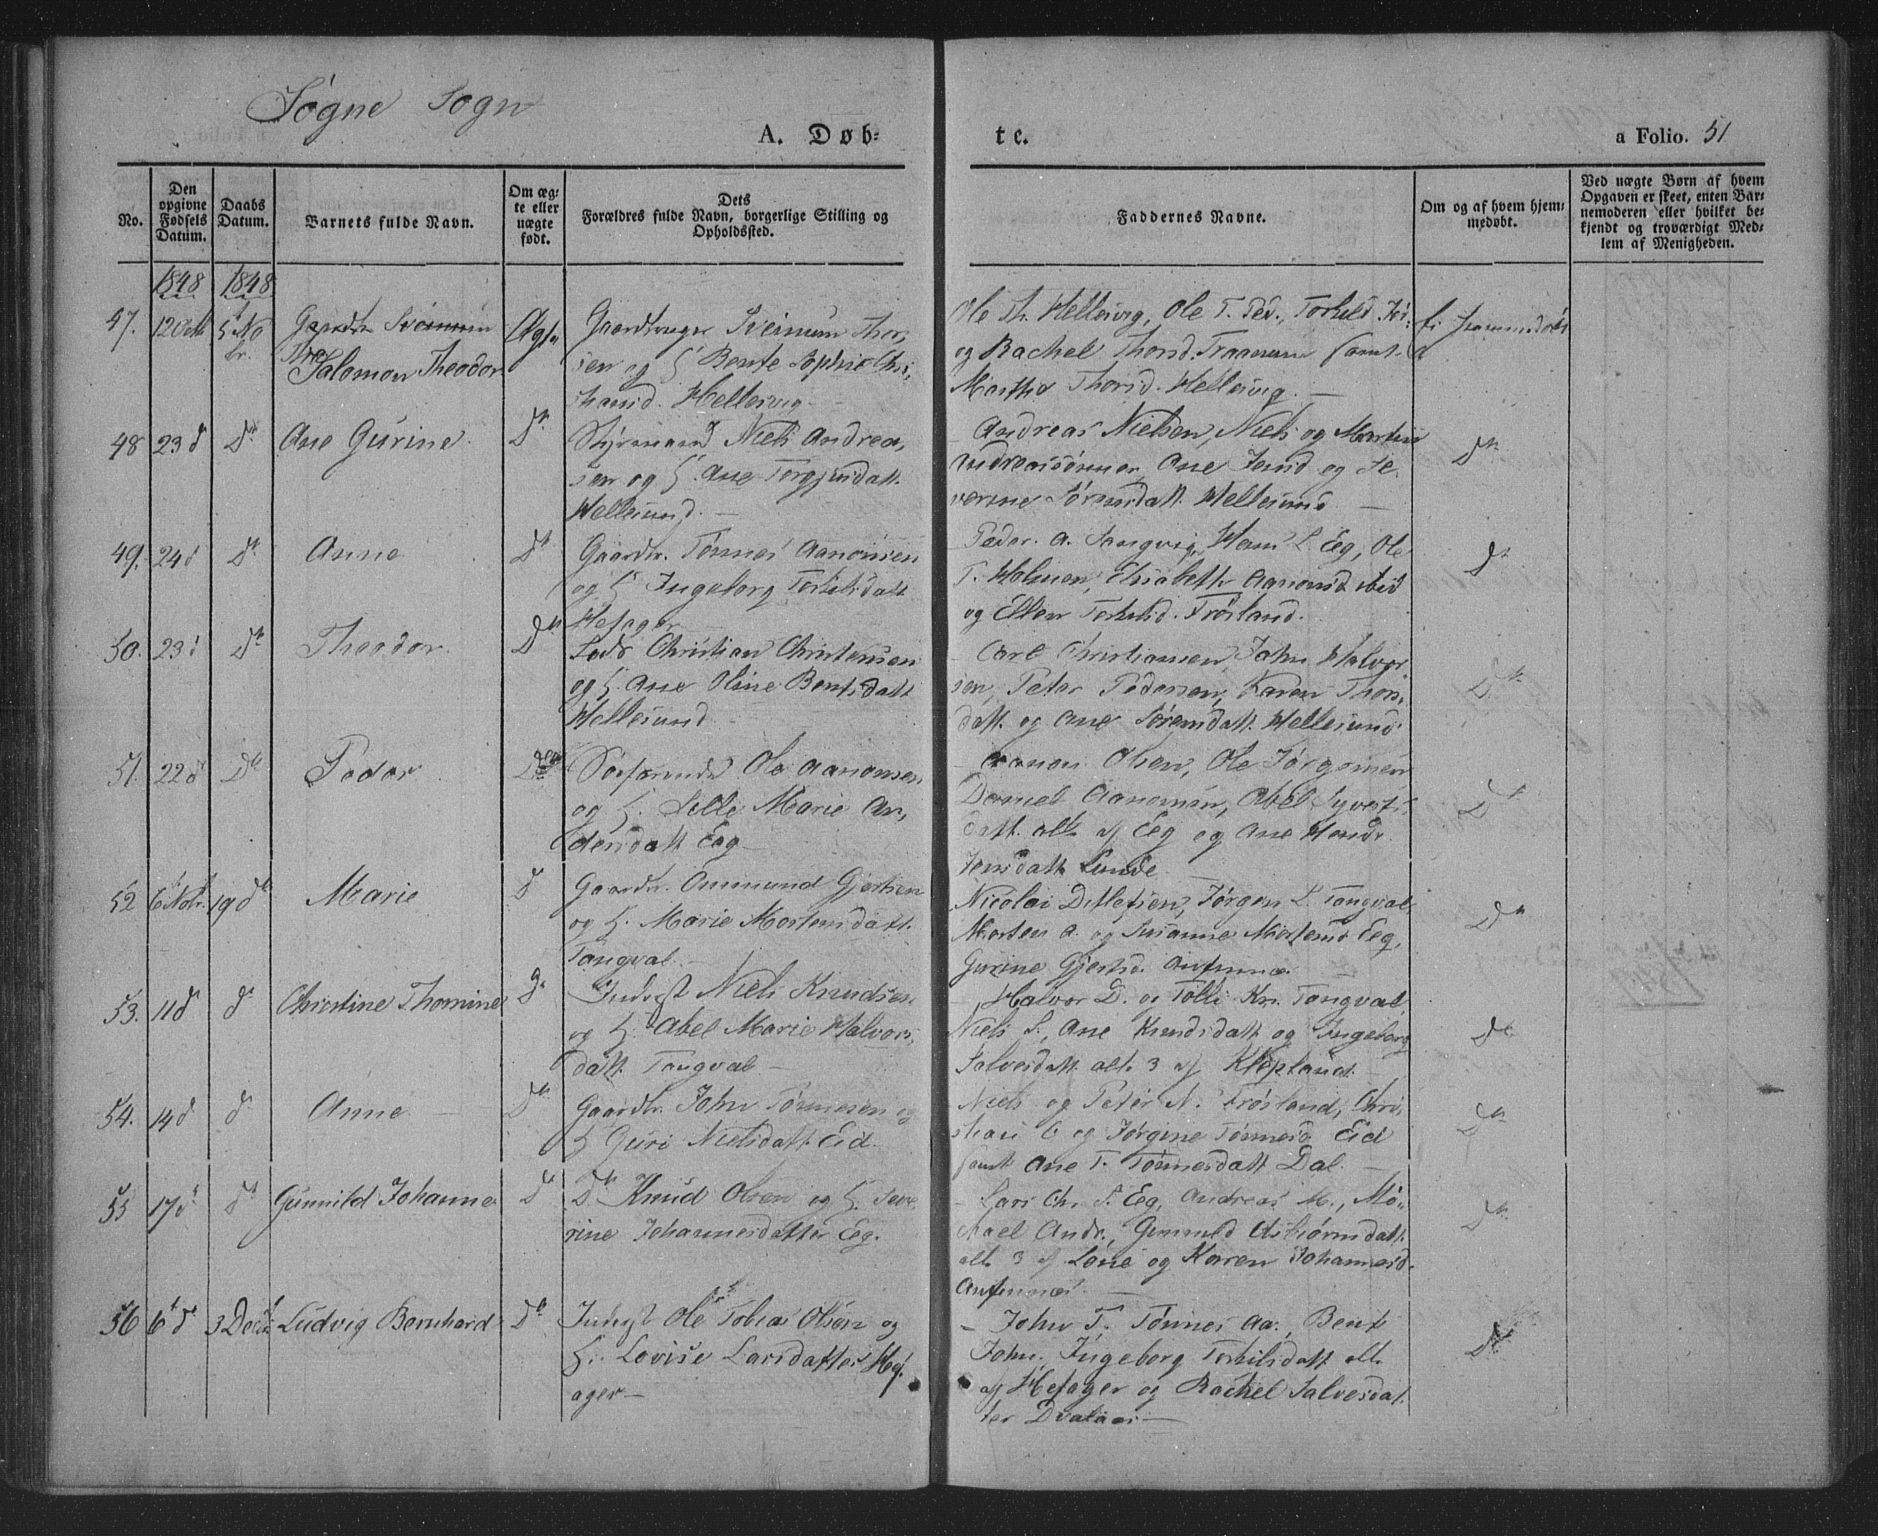 Søgne Sogn
A. Døb-
te.
a Folio. 51
No.
Den opgivne Fødsels Datum.
Daabs Datum.
Barnets fulde Navn.
Om ægte eller nægte født.
Dets Forældres fulde Navn, borgerlige Stilling og Opholdssted.
Faddernes Navne.
Om og af hvem hjemmedøbt.
Ved nægte Børn af hvem Opgaven er skeet, enten Barnemoderen eller hvilket bekjendt og troværdigt Medlem af Menigheden.
1848 1848
47. 12 Oct 5 No br.
Salomon Theodor
Ægte
Gaardbruger Sveinum Thor,
sen og H. Bente Sophie Chri,
stiansd. Hellesvig.
Ole Th. Hellesvig, Ole T. Ped., Torkild
og Rachel Thorsd. Traanum samt
Marthe Thorsd. Hellesvig
48 23 d Do Ane Gurine Do
Styrmand Niels Andrea,
sen og H. Ane Torgjusdatt.
Hellesund.
Andreas Nielsen, Niels og Martin
Andreassønner, Ane Jensd og Se
verine Sørensdatt. Hellesund
Do
49. 24 d Do Anne Do
Gaardbr. Tønnes Aanonsen
og H. Ingeborg Torkilsdatt
Høfager
Peder. A. Langvig, Hans L. Eg, Ole
T. Holmen, Elisabeth Aanonsd ibid
og Ellen Torkilsd. Frøsland.
Do
50. 23 d Do Theodor Do
Lods Christian Christensen
og H. Ane Oline Bentsdatt
Hellesund
Carl Christiansen, John Halvor
sen, Peter Pedersen, Karen Thors,
datt. og Ane Sørensdatt. Hellesund
Do
51. 22 d Do Peder Do
Søefarende Ole Aanonsen
og H. Lille Marie An,
dersdatt Eeg
Aanon Olsen, Ole Jørgensen
Daniel Aanonsen, Abel Syverts
datt. alle af Eeg og Ane
Jensdatt Lunde
Do
52 6 Nobr. 19 do Marie d
Gaardbr. Ommund Gjertsen
og H. Marie Mortensdatt.
Tangval
Nicolai Ditlefsen, Jørgen L. Tangval
Morten A. og Susanne Mortensd Eeg,
Gurine Gjertsd. Aufennæs
Do
53. 11 d d Christine Thomine do
Inderst Niels Knudsen
og H. Abel Marie Halvors,
datt. Tangval
Halvor D. og Tolli Kn. Tangval,
Niels S., Ane Knudsdatt og Ingeborg
Salvesdatt alle 3 af Klepland.
Do
54. 14 d d Anne Do
Gaardbr. John Tønnesen og
H Guri Nielsdatt Eid.
Niels og Peter N. Frøsland, Chri,
stian C og Jørgine Tønnesd Eid
samt Ane T. Tønnesdatt Dal.
Do
55 17 d do Gunnild Johanne d
Do Knud Olsen og H. Seve
rine Johannesdatter Eg.
Lars Ch. S. Eg, Andreas M., Mi-
chael Andr., Gunnild Asbjørnsdatt
alle 3 af Lone og Karen Johannesd.
Aufennæs
Do
56 6 d 3 Decbr Ludvig Bernhard Do
Inderst Ole Tobias Olsen og
H. Lovise Larsdatter Høf,
ager
John T. Tønnes Aa., Bent
John, Ingeborg Torkilsdatt alle
af Høfager og Rachel Salvesdat
ter Dvalaas
Do